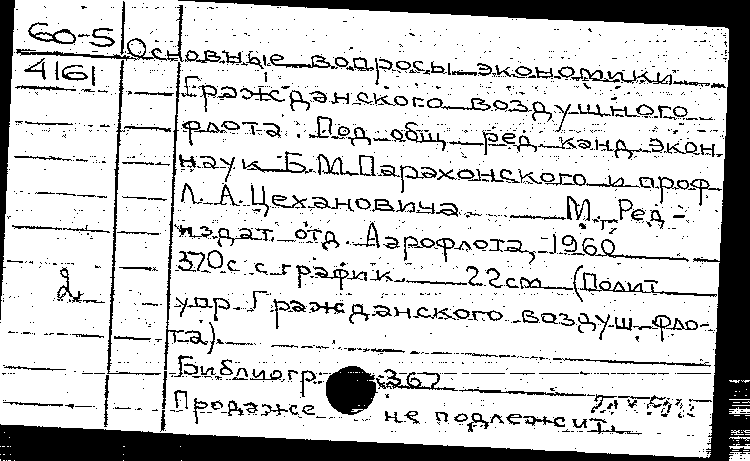 60-5 Основные вопросы экономики
4161 Гражданского воздушного
флота. Под общ. ред. канд. экон.
наук Б.М. Парахонского и проф.
Л. А. Цехановича. М., Ред-
издат. отд. Аэрофлота, 1960
370с с график. 22см (Полит.
2 упр. Гражданского воздуш. фло-
та).
Библиогр. с 367
Продаже не подлежит.